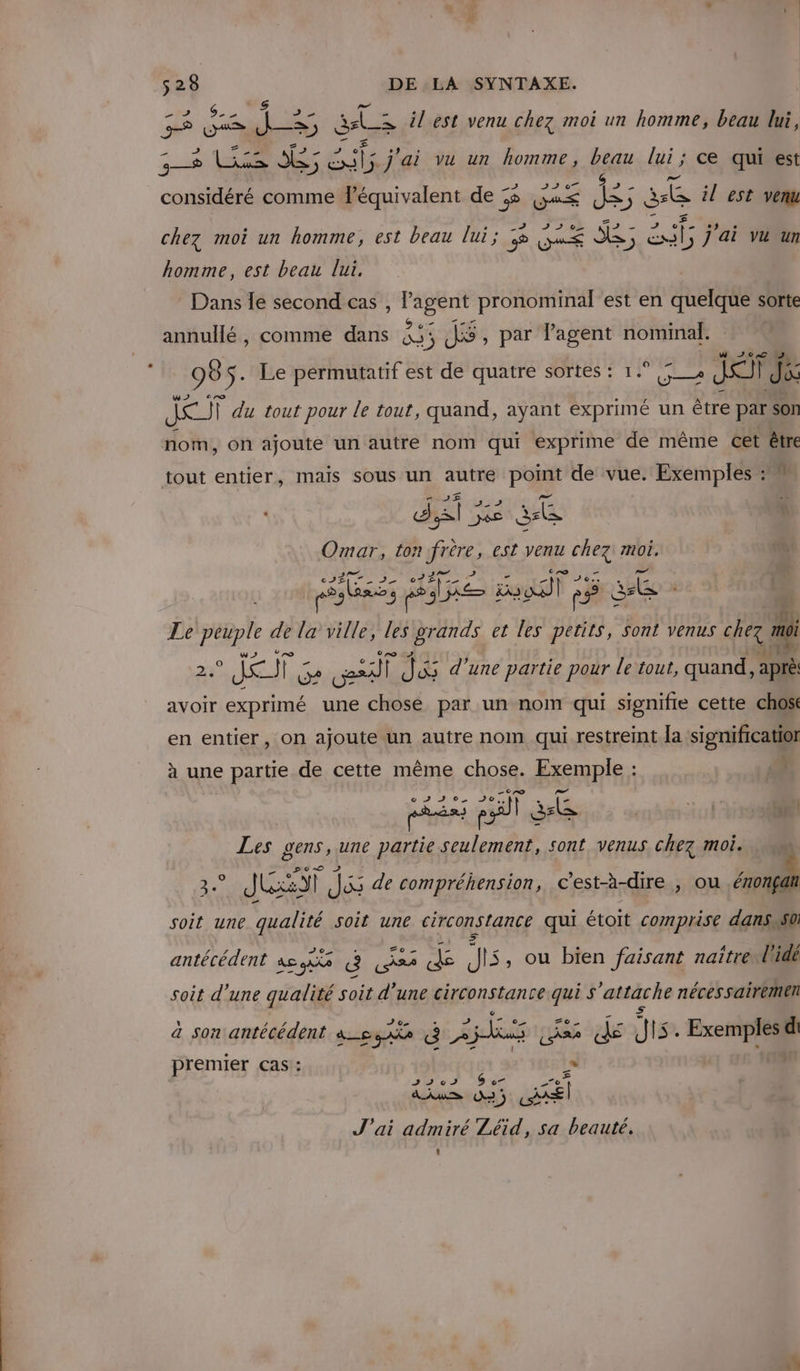 528 DE LA SYNTAXE.
جَاءَنِى رَجُلٌ حَسَنٌ هُوَ il est venu chez moi un homme, beau lui,
رَأَيْتُ رَجُلًا حَسَنًا هُوَ j'ai vu un homme, beau lui; ce qui est
considéré comme l'équivalent de جَاءَنِى رَجُلٌ يَحْسُنُ هُوَ il est venu
chez moi un homme, est beau lui; رَأَيْتُ رَجُلًا يَحْسُنُ هُوَ j'ai vu un
homme, est beau lui.
Dans le second cas, l'agent pronominal est en quelque sorte
annullé, comme dans قَتَلَ زَيْدٌ, par l'agent nominal.
985. Le permutatif est de quatre sortes: 1.° بَدَلُ ٱلْكُلِّ مِنَ
ٱلْكُلِّ du tout pour le tout, quand, ayant exprimé un être par son
nom, on ajoute un autre nom qui exprime de même cet être
tout entier, mais sous un autre point de vue. Exemples:
جَاءَنِى عُمَرُ أَخُوكَ
Omar, ton frère, est venu chez moi.
جَاءَنِى قَوْمُ ٱلْمَدِينَةِ كُبَرَاؤُهُمْ وَضُعَفَاؤُهُمْ
Le peuple de la ville, les grands et les petits, sont venus chez moi
2.° بَدَلُ ٱلْبَعْضِ مِنَ ٱلْكُلِّ d'une partie pour le tout, quand, après
avoir exprimé une chose par un nom qui signifie cette chose
en entier, on ajoute un autre nom qui restreint la signification
à une partie de cette même chose. Exemple:
جَاءَنِى ٱلْقَوْمُ بَعْضُهُمْ
Les gens, une partie seulement, sont venus chez moi.
3.° بَدَلُ ٱلْاِشْتِمَالِ de compréhension, c'est-à-dire, ou énonçant
soit une qualité soit une circonstance qui étoit comprise dans son
antécédent دَالٌّ عَلَى مَعْنًى فِى مَتْبُوعِهِ, ou bien faisant naître l'idé
soit d'une qualité soit d'une circonstance qui s'attache nécessairemen
à son antécédent دَالٌّ عَلَى مَعْنًى يَسْتَلْزِمُ فِى مَتْبُوعِهِ. Exemples du
premier cas:
أَعْجَبَنِى زَيْدٌ حُسْنُهُ
J'ai admiré Zéïd, sa beauté.